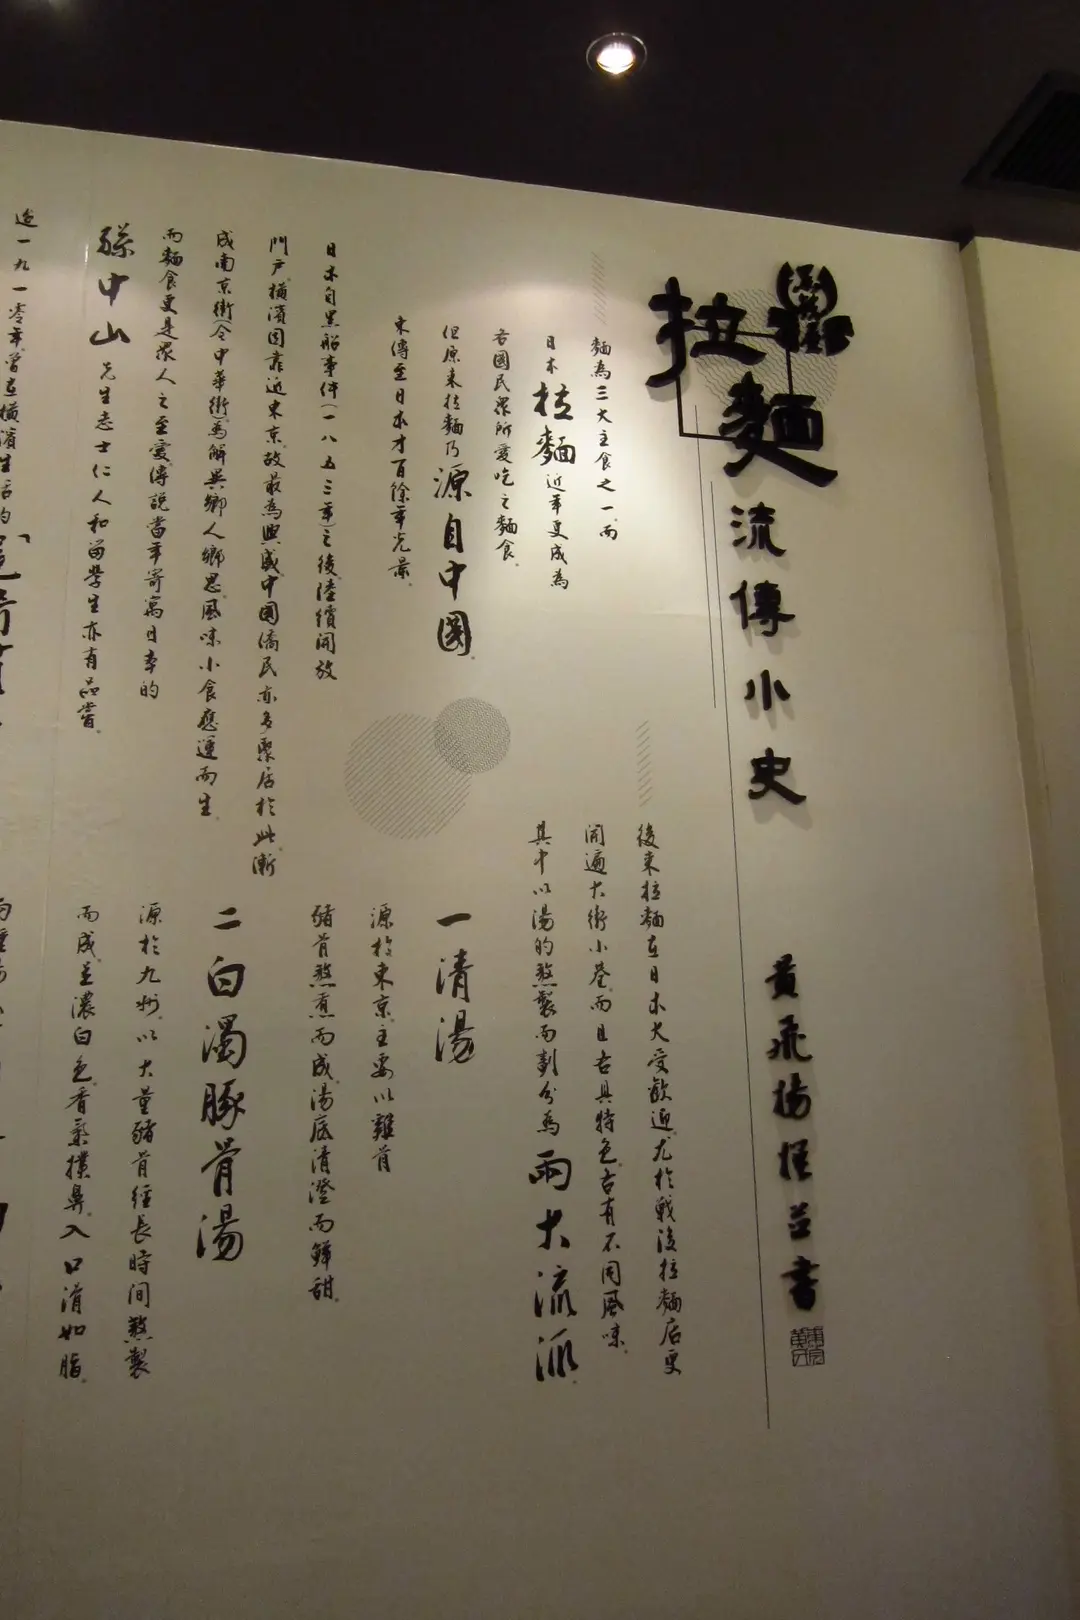 拉麵
流傳小史
黃飛揚恆公書
麵為三大主食之一,而
日本拉麵近年更成為
各國民眾所愛吃之麵食。
但原來拉麵乃源自中國。
來傳至日本才百餘年光景。
日本自黑船事件(一八五三年)之後,陸續開放
門戶,橫濱因靠近東京,故最為興盛,中國僑民亦多聚居於此,漸
成南京街(今中華街),為解異鄉人鄉思,風味小食應運而生。
而麵食更是眾人之至愛,傳說當年寄寓日本的
孫中山先生志士仁人和留學生亦有品嘗。
一九一零年,曾在橫濱生活的
後來拉麵在日本大受歡迎,尤於戰後拉麵店更
開遍大街小巷。而且古具特色,古有不同風味。
其中以湯的熬製而劃分為兩大流派。
一 清湯
源於東京。主要以雞骨
豬骨熬煮而成。湯底清澄而鮮甜。
二 白濁豚骨湯
源於九州。以大量豬骨經長時間熬製
而成。呈濃白色。香氣撲鼻。入口滑如脂。